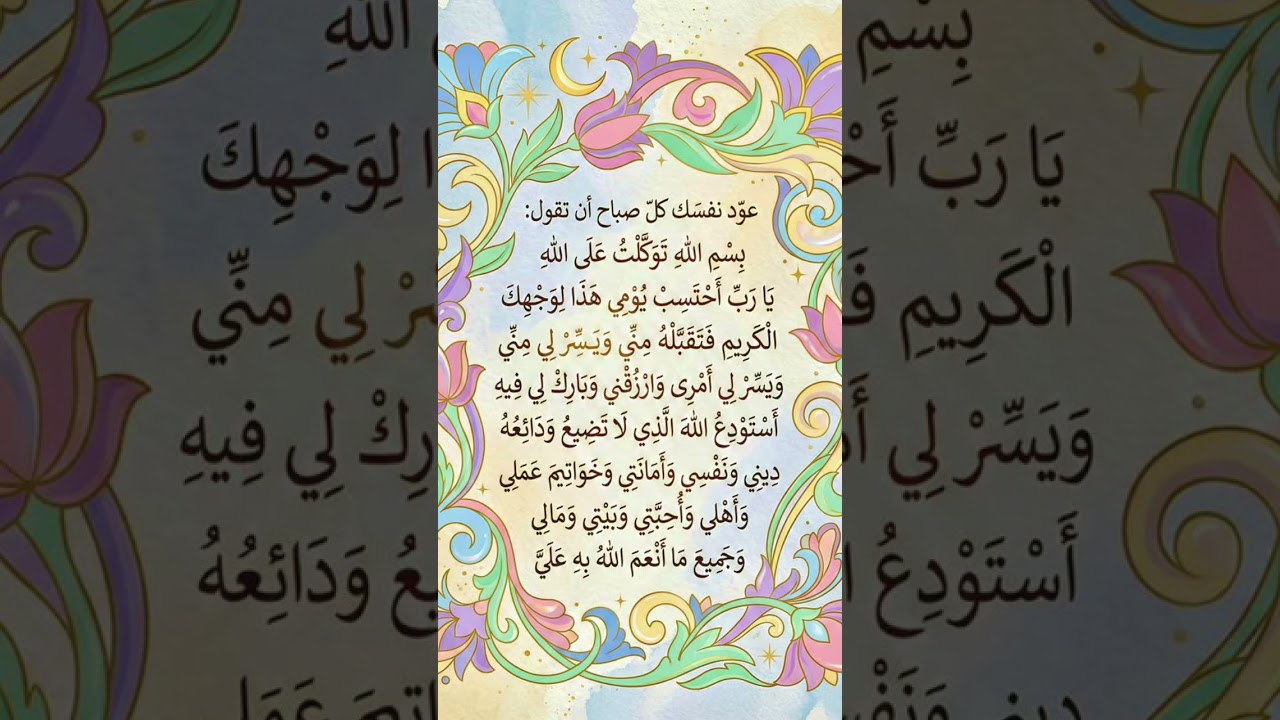 عوّد نفسَك كلّ صباح أن تقول:
بِسْمِ اللهِ تَوَكَّلْتُ عَلَى اللهِ
يَا رَبِّ أَحْتَسِبْ يُوْمِي هَذَا لِوَجْهِكَ
الْكَرِيمِ فَتَقَبَّلْهُ مِنِّي وَيَسِّرْ لِي مِنِّي
وَيَسِّرْ لِي أَمْرِى وَارْزُقْني وَبَارِكْ لِي فِيهِ
أَسْتَوْدِعُ اللهَ الَّذِي لَا تَضِيعُ وَدَائِعُهُ
دِينِي وَنَفْسِي وَأَمَانَتِي وَخَوَاتِيمَ عَمَلِي
وَأَهْلي وَأُحِبَّتِي وَبَيْتِي وَمَالِي
وَجَمِيعَ مَا أَنْعَمَ اللهُ بِهِ عَلَيَّ